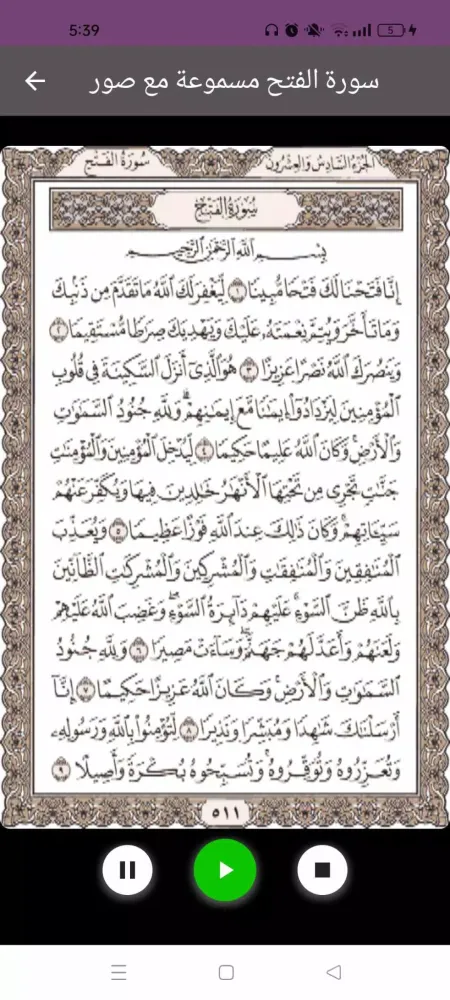 5:39
5
سورة الفتح مسموعة مع صور
الجزء السادس والعشرون
سُورَةُ الفَتْحِ
سُورَةُ الفَتْحِ
بِسْمِ اللَّهِ الرَّحْمَٰنِ الرَّحِيمِ
إِنَّا فَتَحْنَا لَكَ فَتْحًا مُّبِينًا ١ لِّيَغْفِرَ لَكَ اللَّهُ مَا تَقَدَّمَ مِن ذَنۢبِكَ
وَمَا تَأَخَّرَ وَيُتِمَّ نِعْمَتَهُۥ عَلَيْكَ وَيَهْدِيَكَ صِرَٰطًا مُّسْتَقِيمًا ٢
وَيَنصُرَكَ اللَّهُ نَصْرًا عَزِيزًا ٣ هُوَ الَّذِىٓ أَنزَلَ السَّكِينَةَ فِى قُلُوبِ
الْمُؤْمِنِينَ لِيَزْدَادُوٓا۟ إِيمَٰنًا مَّعَ إِيمَٰنِهِمْ ۗ وَلِلَّهِ جُنُودُ السَّمَٰوَٰتِ
وَالْأَرْضِ ۚ وَكَانَ اللَّهُ عَلِيمًا حَكِيمًا ٤ لِّيُدْخِلَ الْمُؤْمِنِينَ وَالْمُؤْمِنَٰتِ
جَنَّٰتٍ تَجْرِى مِن تَحْتِهَا الْأَنْهَٰرُ خَٰلِدِينَ فِيهَا وَيُكَفِّرَ عَنْهُمْ
سَيِّـَٔاتِهِمْ ۚ وَكَانَ ذَٰلِكَ عِندَ اللَّهِ فَوْزًا عَظِيمًا ٥ وَيُعَذِّبَ
الْمُنَٰفِقِينَ وَالْمُنَٰفِقَٰتِ وَالْمُشْرِكِينَ وَالْمُشْرِكَٰتِ الظَّآنِّينَ
بِاللَّهِ ظَنَّ السَّوْءِ ۚ عَلَيْهِمْ دَآئِرَةُ السَّوْءِ ۖ وَغَضِبَ اللَّهُ عَلَيْهِمْ
وَلَعَنَهُمْ وَأَعَدَّ لَهُمْ جَهَنَّمَ ۖ وَسَآءَتْ مَصِيرًا ٦ وَلِلَّهِ جُنُودُ
السَّمَٰوَٰتِ وَالْأَرْضِ ۚ وَكَانَ اللَّهُ عَزِيزًا حَكِيمًا ٧ إِنَّآ
أَرْسَلْنَٰكَ شَٰهِدًا وَمُبَشِّرًا وَنَذِيرًا ٨ لِّتُؤْمِنُوا۟ بِاللَّهِ وَرَسُولِهِۦ
وَتُعَزِّرُوهُ وَتُوَقِّرُوهُ ۚ وَتُسَبِّحُوهُ بُكْرَةً وَأَصِيلًا ٩
٥١١